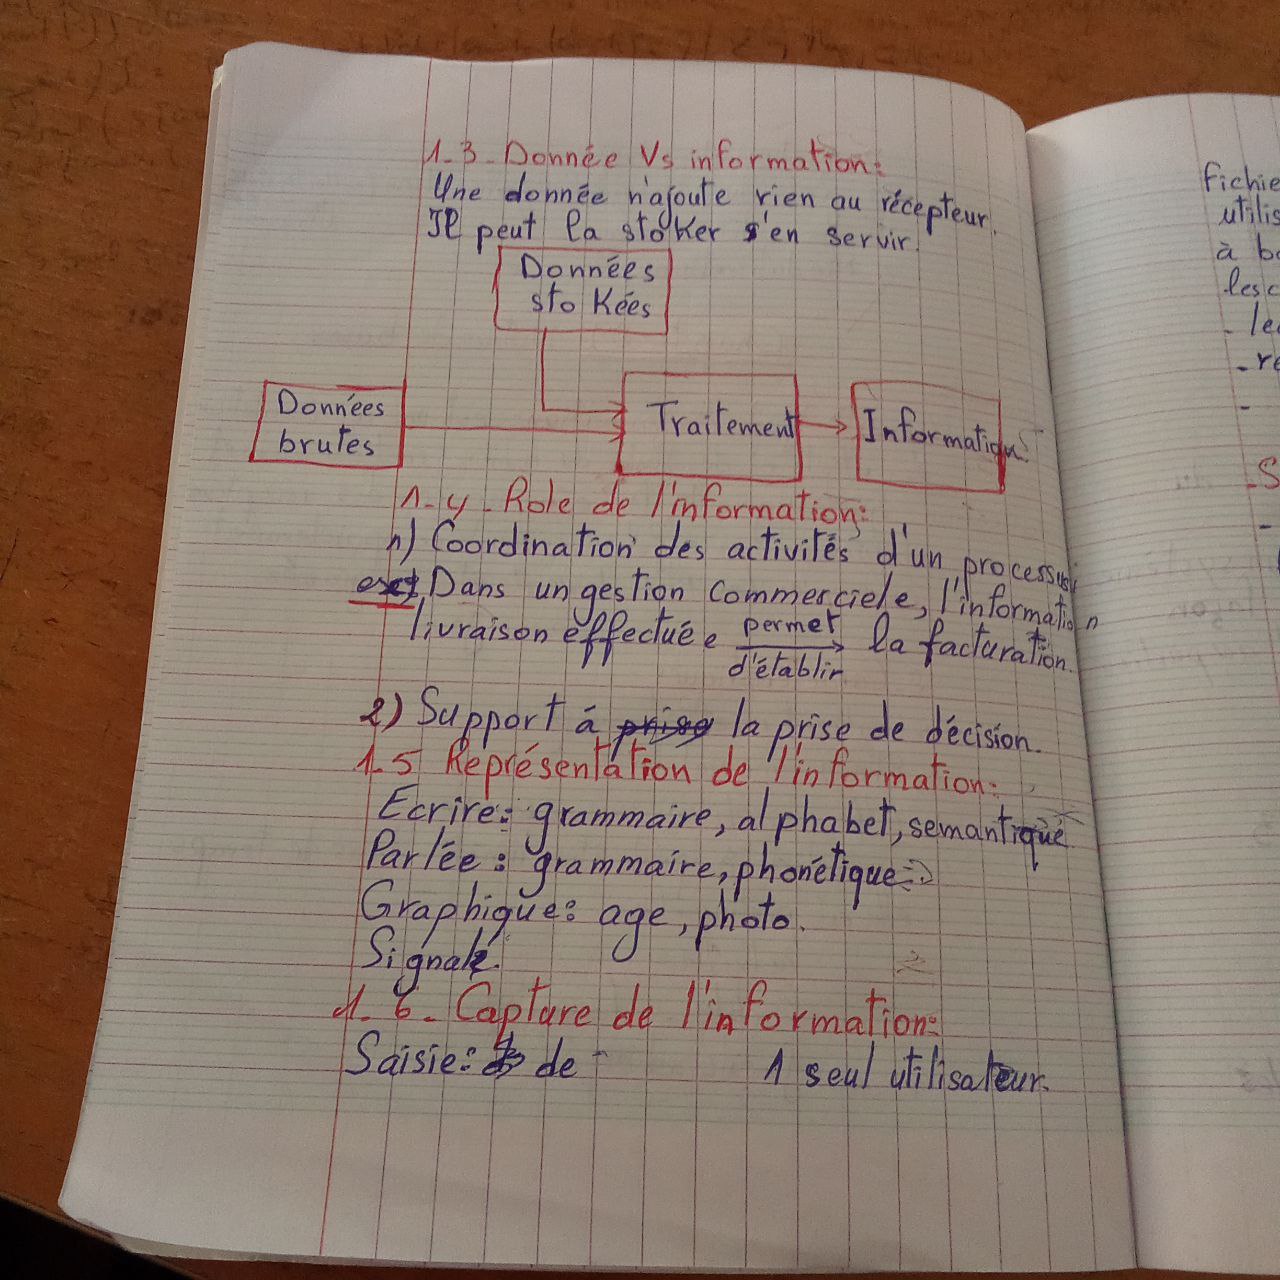 1.3. Donnée Vs information:
Une donnée n'ajoute rien au récepteur.
Il peut la stoker s'en servir.
Données
stokées
Données
brutes
Traitement
Information
1.4. Role de l'information:
1) Coordination des activités d'un processus
Dans un gestion commerciele, l'information
livraison effectuée permet la facturation.
d'établir
2) Support á la prise de décision.
1.5 Représentation de l'information:
Ecrire: grammaire, alphabet, semantique
Parlée: grammaire, phonétique
Graphique: age, photo.
Signal
1.6. Capture de l'information:
Saisie: de 1 seul utilisateur.
fichie
utilis
à b
les c
- le
- re
-
-S
-